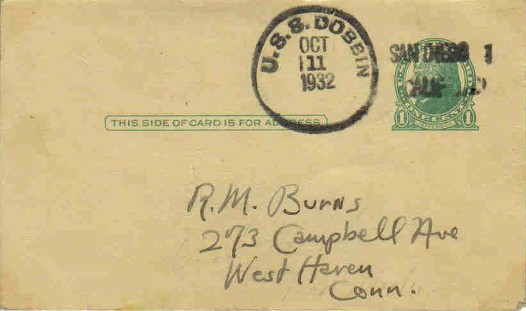 U.S.S. DOBBIN
OCT
11
1932
SAN DIEGO 1
CALIF
THIS SIDE OF CARD IS FOR ADDRESS
1 1
R.M. Burns
273 Campbell Ave
West Haven
Conn.